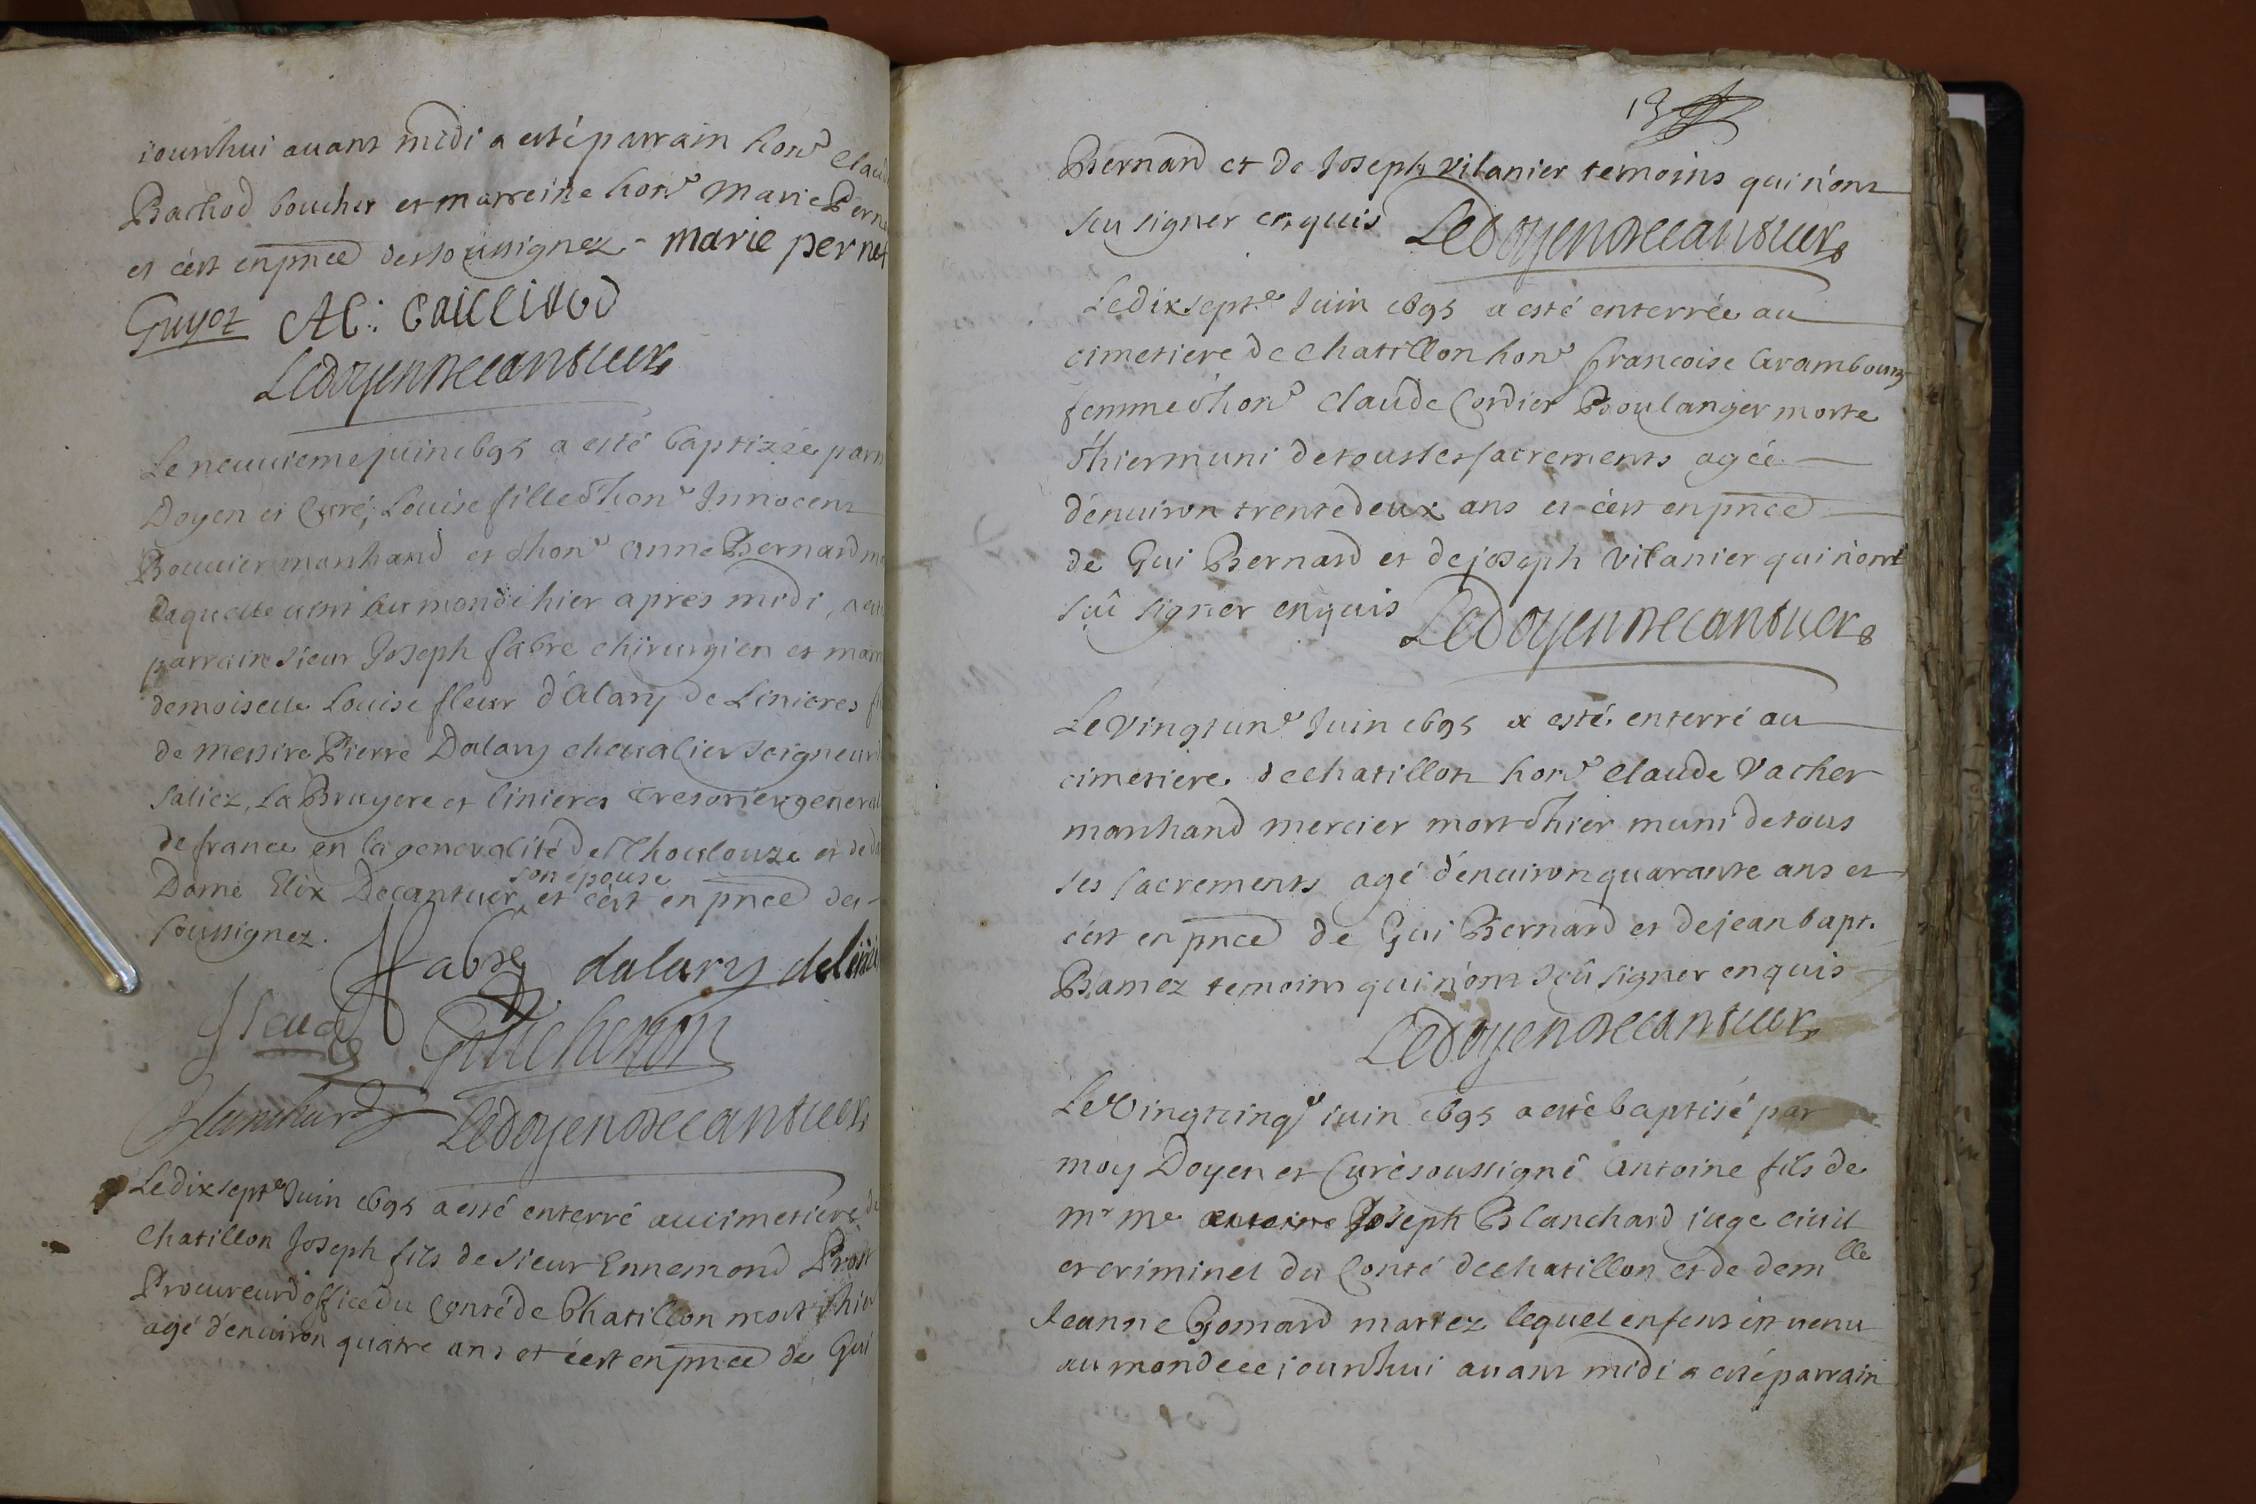 iourdhui auant midi a esté parrain hon.e Claude
Bachod boucher et marreine hon.e Marie Perne
et c'est en pnce des soussignez - marie pernet
Guyot AC: CAILLIAUD
Ledoyen Decantuer
Le neuuieme juin 1695 a esté baptizée par m
Doyen et Curé, Louise fille d'hon.e Innocent
Bouuier marchand et d'hon.e Anne Bernard m
laquelle vint au monde hier apres midi, a est
parrain sieur Joseph fabre chirurgien et marr
demoiselle Louise fleur d'Alary de Linieres f
de messire Pierre Dalary cheualier seigneur
saliez, La Bruyere et linieres Tresorier general
de france en la generalité de Thoulouze et de
Dame Elix Decantuer son epouse et c'est en pnce des
soussignez.
fabre dalary de lini
Guichenon
Blanchard Ledoyen Decantuer
Le dix sept.e Juin 1695 a esté enterré au cimetiere de
Chatillon Joseph fils de sieur Ennemond Prost
Procureur d'office du Conté de Chatillon mort d'hier
agé d'enuiron quatre ans et c'est en pnce de Gui
13
Bernard et de Joseph Vilanier temoins qui n'ont
sçu signer enquis Ledoyen Decantuer
Le dix sept.e Juin 1695 a esté enterrée au
cimetiere de Chatillon hon.e francoise Arambourg
femme d'hon.e Claude Cordier Boulanger morte
d'hier muni de tous les sacrements agée
d'enuiron trente deux ans et c'est en pnce
de Gui Bernard et de joseph Vilanier qui n'ont
sçû signer enquis Ledoyen Decantuer
Le Vingt un.e Juin 1695 a esté enterré au
cimetiere de chatillon hon.e Claude Vacher
marchand mercier mort d'hier muni de tous
ses sacrements agé d'enuiron quarante ans et
c'est en pnce de Gui Bernard et de jean bapt.
Bamez temoins qui n'ont sçû signer enquis
Ledoyen Decantuer
Le Vingt cinq.e iuin 1695 a esté baptisé par
moy Doyen et Curé soussigné Antoine fils de
mr me Joseph Blanchard iuge ciuil
et criminel du Conté de chatillon et de dem.lle
Jeanne Gomard mariez lequel enfent est uenu
au monde ce iourdhui auant midi a esté parrain